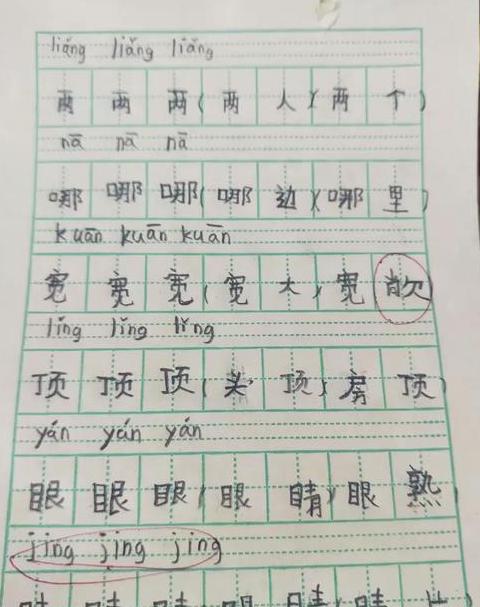 liǎng liǎng liǎng
两 两 两(两 人)(两 个)
nā nā nā
哪 哪 哪(哪 边)(哪 里)
kuān kuān kuān
宽 宽 宽(宽 大)宽
lǐng lǐng lǐng
顶 顶 顶(头 顶)房 顶)
yán yán yán
眼 眼 眼(眼 睛)眼 熟)
jīng jīng jīng